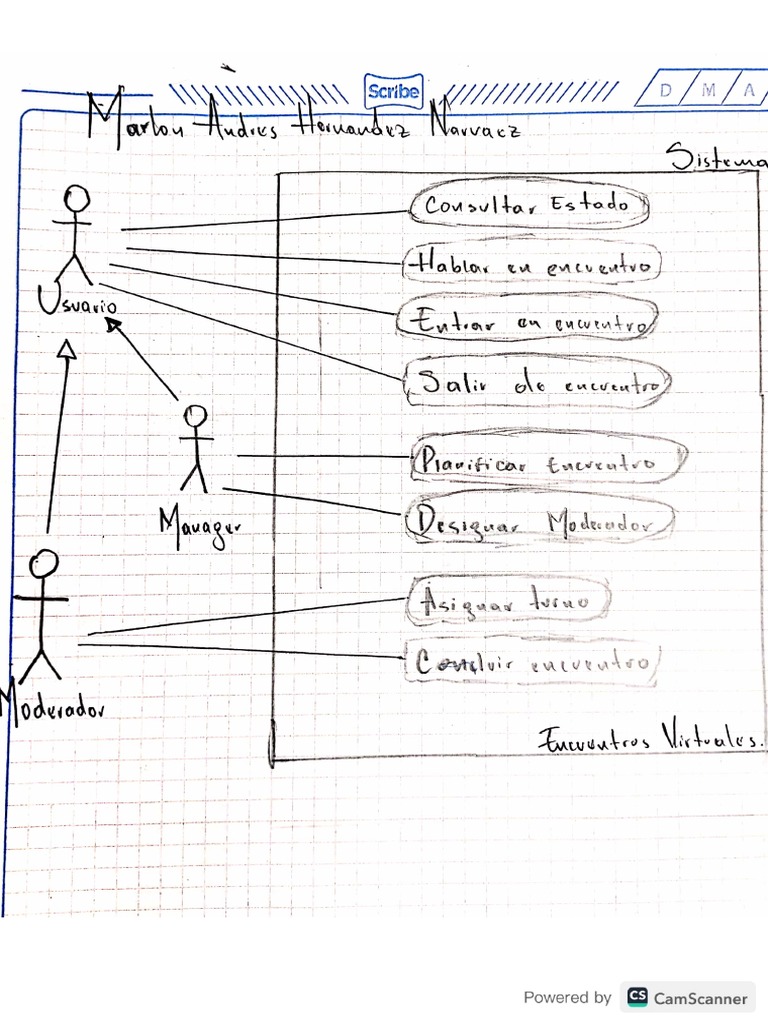 Scribe
D M A
Marlon Andres Hernandez Narvaez
Sistema
Consultar Estado
Hablar en encuentro
Usuario
Entrar en encuentro
Salir de encuentro
Planificar Encuentro
Manager
Designar Moderador
Asignar turno
Concluir encuentro
Moderador
Encuentros Virtuales.
Powered by CS CamScanner